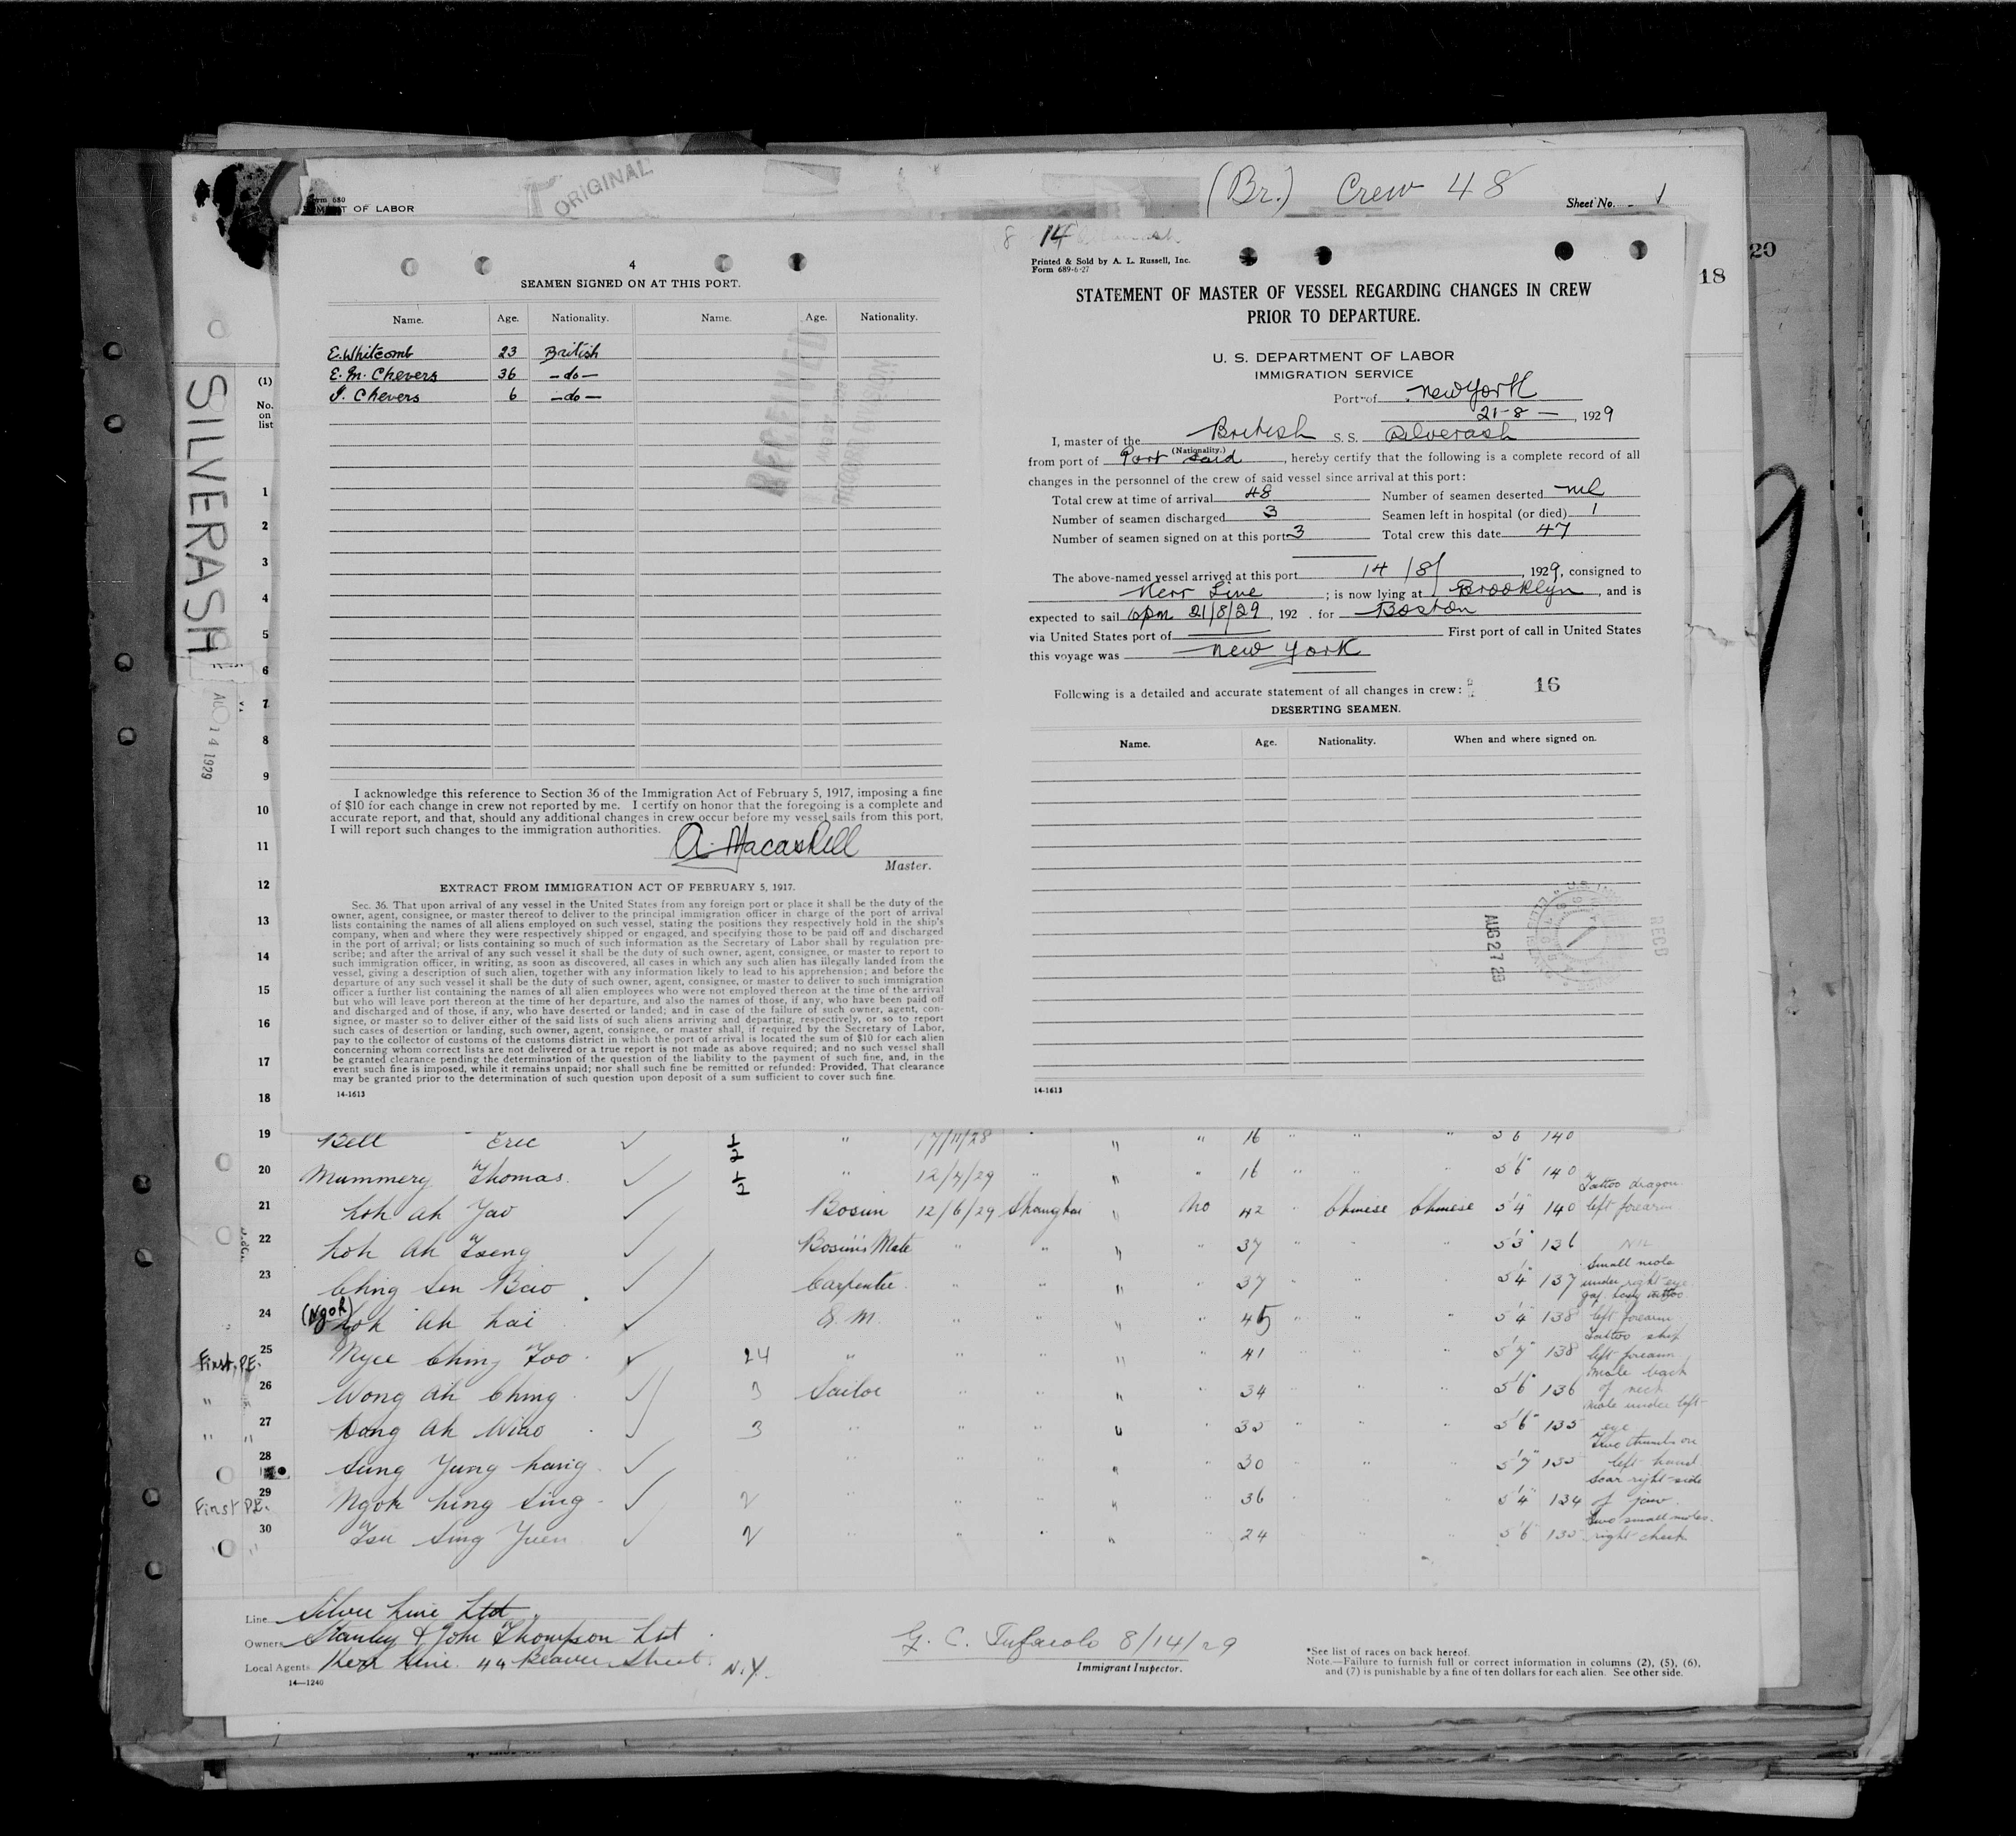 ORIGINAL
(Br.) Crew 48
Sheet No. 1
Form 680
OF LABOR
SILVERASH
AUG 14 1929
18
29
(1)
No.
on
list
1
2
3
4
5
6
7
8
9
10
11
12
13
14
15
16
17
18
4
SEAMEN SIGNED ON AT THIS PORT.
Name. Age. Nationality. Name. Age. Nationality.
E. Whitcomb 23 British
E. M. Chevers 36 -do-
I. Chevers 6 -do-
RECEIVED
RECORD DIVISION
I acknowledge this reference to Section 36 of the Immigration Act of February 5, 1917, imposing a fine
of $10 for each change in crew not reported by me. I certify on honor that the foregoing is a complete and
accurate report, and that, should any additional changes in crew occur before my vessel sails from this port,
I will report such changes to the immigration authorities.
A. Macaskell
Master.
EXTRACT FROM IMMIGRATION ACT OF FEBRUARY 5, 1917.
Sec. 36. That upon arrival of any vessel in the United States from any foreign port or place it shall be the duty of the
owner, agent, consignee, or master thereof to deliver to the principal immigration officer in charge of the port of arrival
lists containing the names of all aliens employed on such vessel, stating the positions they respectively hold in the ship's
company, when and where they were respectively shipped or engaged, and specifying those to be paid off and discharged
in the port of arrival; or lists containing so much of such information as the Secretary of Labor shall by regulation pre-
scribe; and after the arrival of any such vessel it shall be the duty of such owner, agent, consignee, or master to report to
such immigration officer, in writing, as soon as discovered, all cases in which any such alien has illegally landed from the
vessel, giving a description of such alien, together with any information likely to lead to his apprehension; and before the
departure of any such vessel it shall be the duty of such owner, agent, consignee, or master to deliver to such immigration
officer a further list containing the names of all alien employees who were not employed thereon at the time of the arrival
but who will leave port thereon at the time of her departure, and also the names of those, if any, who have been paid off
and discharged and of those, if any, who have deserted or landed; and in case of the failure of such owner, agent, con-
signee, or master so to deliver either of the said lists of such aliens arriving and departing, respectively, or so to report
such cases of desertion or landing, such owner, agent, consignee, or master shall, if required by the Secretary of Labor,
pay to the collector of customs of the customs district in which the port of arrival is located the sum of $10 for each alien
concerning whom correct lists are not delivered or a true report is not made as above required; and no such vessel shall
be granted clearance pending the determination of the question of the liability to the payment of such fine, and, in the
event such fine is imposed, while it remains unpaid; nor shall such fine be remitted or refunded: Provided, That clearance
may be granted prior to the determination of such question upon deposit of a sum sufficient to cover such fine.
14-1613
8 14
Printed & Sold by A. L. Russell, Inc.
Form 689-6-27
STATEMENT OF MASTER OF VESSEL REGARDING CHANGES IN CREW
PRIOR TO DEPARTURE.
U. S. DEPARTMENT OF LABOR
IMMIGRATION SERVICE
Port of New York
21-8-, 1929
I, master of the British S. S. Silverash
(Nationality.)
from port of Port Said, hereby certify that the following is a complete record of all
changes in the personnel of the crew of said vessel since arrival at this port:
Total crew at time of arrival 48 Number of seamen deserted nil
Number of seamen discharged 3 Seamen left in hospital (or died) 1
Number of seamen signed on at this port 3 Total crew this date 47
The above-named vessel arrived at this port 14/8/, 1929, consigned to
Kerr Line; is now lying at Brooklyn, and is
expected to sail 6pm 21/8/29, 192 . for Boston
via United States port of First port of call in United States
this voyage was New York
Following is a detailed and accurate statement of all changes in crew: 16
DESERTING SEAMEN.
Name. Age. Nationality. When and where signed on.
AUG 27 29
RECD
14-1613
19 Bell Eric ✓ 1/2 " 17/11/28 " " " 16 " " " 5'6 140
20 Mummery Thomas. ✓ 1/2 " 12/4/29 " " " 16 " " " 5'6" 140
21 Loh Ah Yao ✓ Bosun 12/6/29 Shanghai " No 42 " Chinese Chinese 5'4" 140 Tattoo dragon left forearm
22 Loh Ah Tseng ✓ Bosun's Mate " " " 37 " " " 5'3" 136 Nil
23 Ching Sen Bao ✓ Carpenter " " " 37 " " " 5'4" 137 Small mole under right eye
24 (Ngoh) Loh Ah Lai ✓ Q. M. " " " 45 " " " 5'4" 138 tattoo left forearm
First P.E. 25 Nyee Ching Foo ✓ 24 " " " " 41 " " " 5'7" 138 Tattoo ship left forearm
" 26 Wong Ah Ching ✓ 3 Sailor " " " 34 " " " 5'6" 136 Mole back of neck
" " 27 Dong Ah Miao ✓ 3 " " " " " 35 " " " 5'6" 135 Mole under left eye
28 Sung Yung Lang ✓ " " " " " 30 " " " 5'7" 135 Two thumbs on left hand
First P.E. 29 Ngoh Ling Sing ✓ 2 " " " " " 36 " " " 5'4" 134 Scar right side of jaw
" 30 Tsu Sing Yuen ✓ 2 " " " " " 24 " " " 5'6 135 Two small moles right cheek
Line Silver Line Ltd.
Owners Stanley & John Thompson Ltd.
Local Agents Kerr Line. 44 Beaver Street. N.Y.
14—1240
G. C. Tufarolo 8/14/29
Immigrant Inspector.
*See list of races on back hereof.
Note.—Failure to furnish full or correct information in columns (2), (5), (6),
and (7) is punishable by a fine of ten dollars for each alien. See other side.